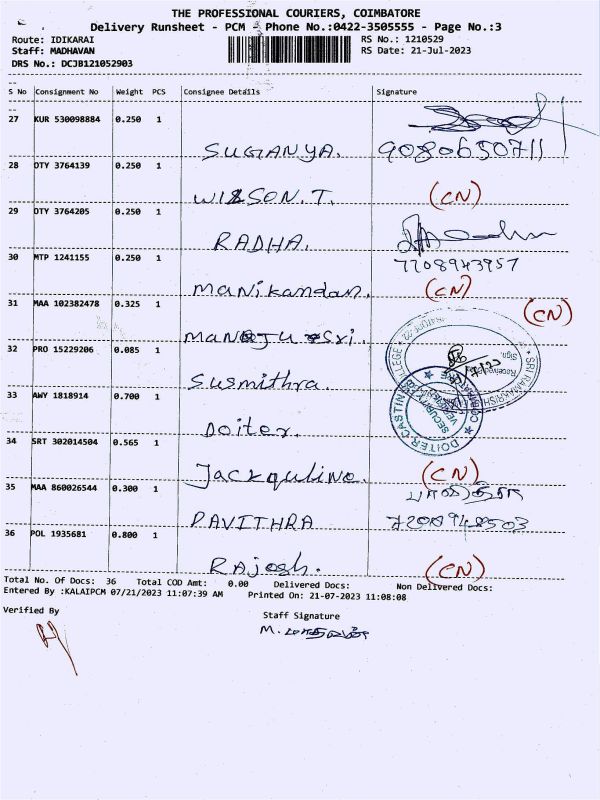 THE PROFESSIONAL COURIERS, COIMBATORE
Delivery Runsheet - PCM - Phone No.:0422-3505555 - Page No.:3
Route: IDIKARAI RS No.: 1210529
Staff: MADHAVAN RS Date: 21-Jul-2023
DRS No.: DCJB121052903
S No Consignment No Weight PCS Consignee Details Signature
27 KUR 530098884 0.250 1
SUGANYA. 9080650711
28 DTY 3764139 0.250 1
WILSON.T. (CN)
29 DTY 3764205 0.250 1
RADHA. 7708943957
30 MTP 1241155 0.250 1
Manikandan. (CN)
31 MAA 102382478 0.325 1 (CN)
Manoju Sri.
32 PRO 15229206 0.085 1
Susmithra.
33 AWY 1818914 0.700 1
Doiter.
DOITER-CASTING
SECURITY
34 SRT 302014504 0.565 1
Jackquline. (CN)
35 MAA 860026544 0.300 1
PAVITHRA 7200948503
36 POL 1935681 0.800 1
Rajesh. (CN)
Total No. Of Docs: 36 Total COD Amt: 0.00 Delivered Docs: Non Delivered Docs:
Entered By :KALAIPCM 07/21/2023 11:07:39 AM Printed On: 21-07-2023 11:08:08
Verified By Staff Signature
M. மாதவன்